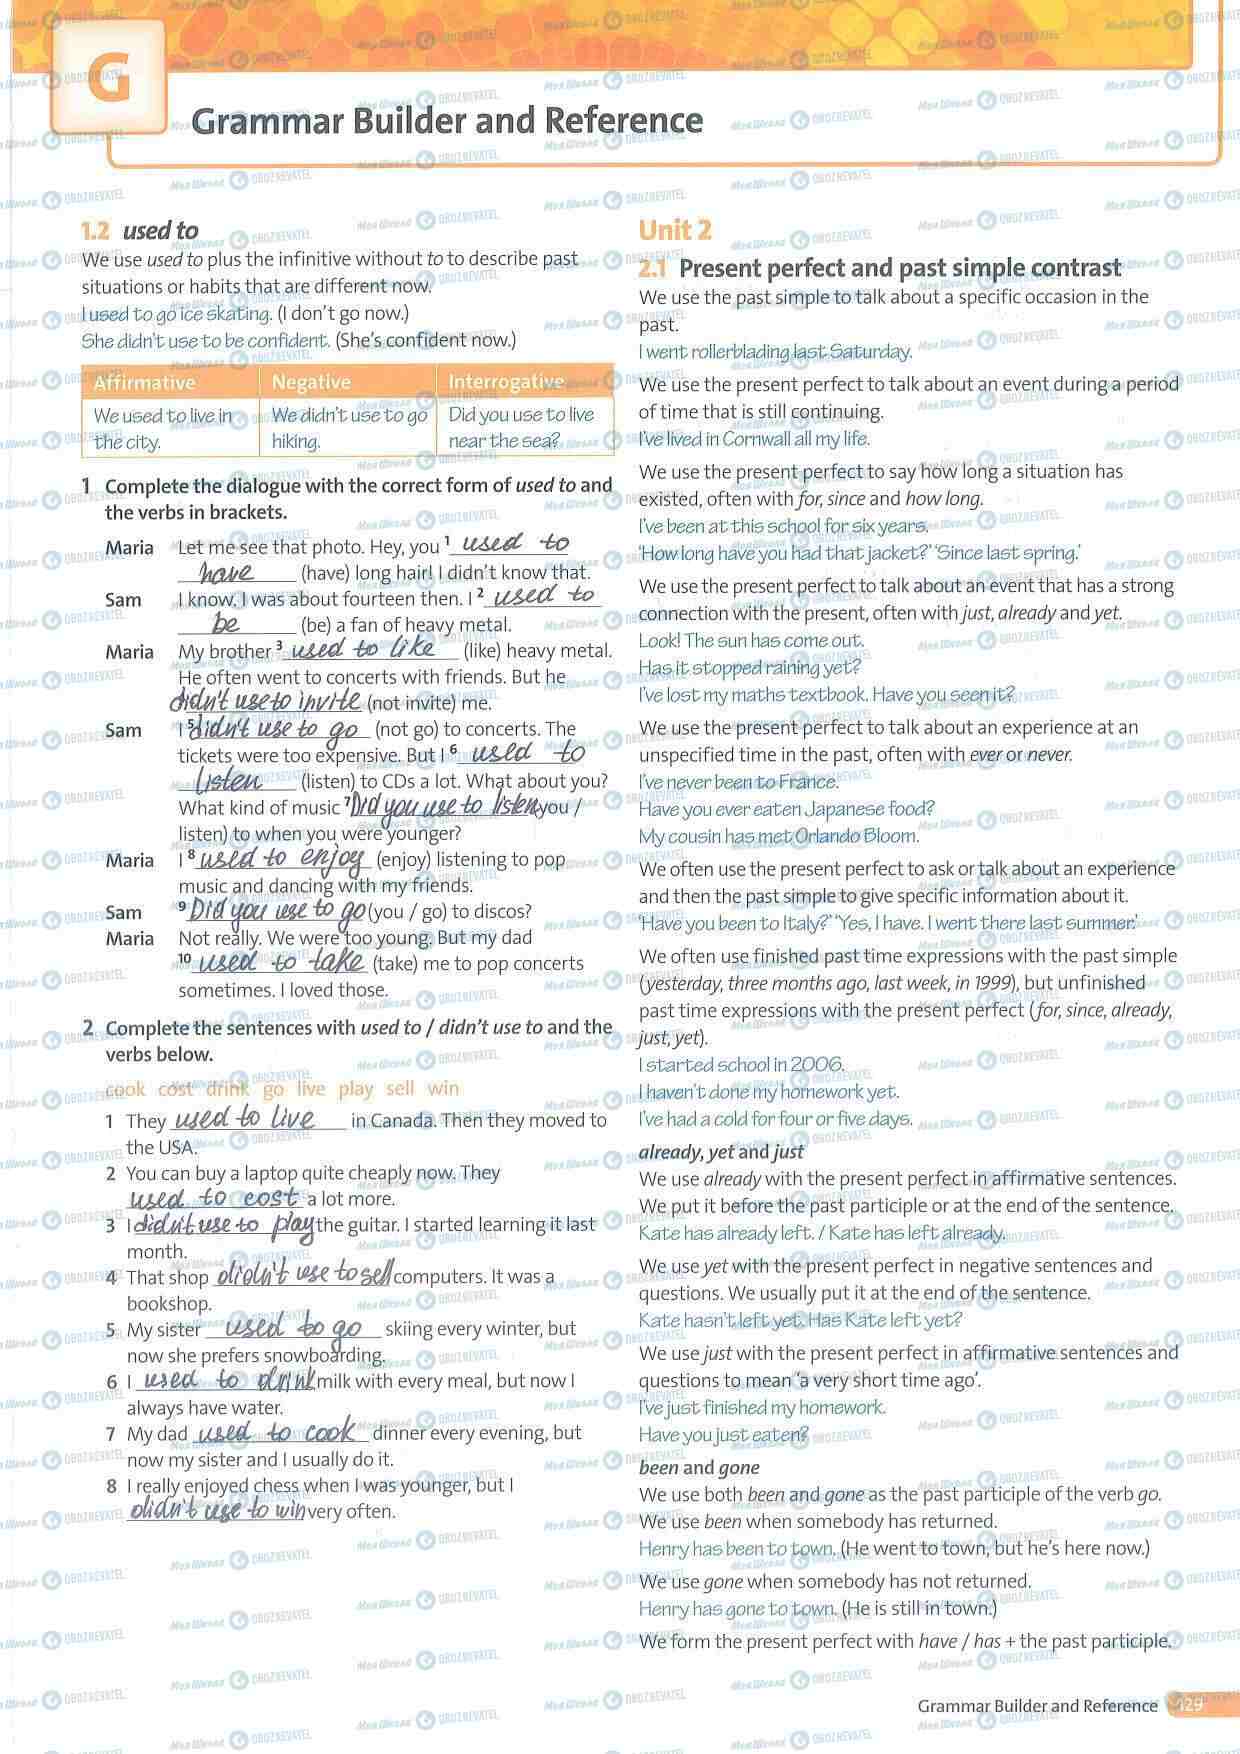 G
Grammar Builder and Reference
1.2 used to
We use used to plus the infinitive without to to describe past
situations or habits that are different now.
I used to go ice skating. (I don't go now.)
She didn't use to be confident. (She's confident now.)
Affirmative Negative Interrogative
We used to live in We didn't use to go Did you use to live
the city. hiking. near the sea?
1 Complete the dialogue with the correct form of used to and
the verbs in brackets.
Maria Let me see that photo. Hey, you 1 used to
have (have) long hair! I didn't know that.
Sam I know. I was about fourteen then. I 2 used to
be (be) a fan of heavy metal.
Maria My brother 3 used to like (like) heavy metal.
He often went to concerts with friends. But he
didn't use to invite (not invite) me.
Sam I 5 didn't use to go (not go) to concerts. The
tickets were too expensive. But I 6 used to
listen (listen) to CDs a lot. What about you?
What kind of music 7 Did you use to listen you /
listen) to when you were younger?
Maria I 8 used to enjoy (enjoy) listening to pop
music and dancing with my friends.
Sam 9 Did you use to go (you / go) to discos?
Maria Not really. We were too young. But my dad
10 used to take (take) me to pop concerts
sometimes. I loved those.
2 Complete the sentences with used to / didn't use to and the
verbs below.
cook cost drink go live play sell win
1 They used to live in Canada. Then they moved to
the USA.
2 You can buy a laptop quite cheaply now. They
used to cost a lot more.
3 I didn't use to play the guitar. I started learning it last
month.
4 That shop didn't use to sell computers. It was a
bookshop.
5 My sister used to go skiing every winter, but
now she prefers snowboarding.
6 I used to drink milk with every meal, but now I
always have water.
7 My dad used to cook dinner every evening, but
now my sister and I usually do it.
8 I really enjoyed chess when I was younger, but I
didn't use to win very often.
Unit 2
2.1 Present perfect and past simple contrast
We use the past simple to talk about a specific occasion in the
past.
I went rollerblading last Saturday.
We use the present perfect to talk about an event during a period
of time that is still continuing.
I've lived in Cornwall all my life.
We use the present perfect to say how long a situation has
existed, often with for, since and how long.
I've been at this school for six years.
'How long have you had that jacket?' 'Since last spring.'
We use the present perfect to talk about an event that has a strong
connection with the present, often with just, already and yet.
Look! The sun has come out.
Has it stopped raining yet?
I've lost my maths textbook. Have you seen it?
We use the present perfect to talk about an experience at an
unspecified time in the past, often with ever or never.
I've never been to France.
Have you ever eaten Japanese food?
My cousin has met Orlando Bloom.
We often use the present perfect to ask or talk about an experience
and then the past simple to give specific information about it.
'Have you been to Italy?' 'Yes, I have. I went there last summer.'
We often use finished past time expressions with the past simple
(yesterday, three months ago, last week, in 1999), but unfinished
past time expressions with the present perfect (for, since, already,
just, yet).
I started school in 2006.
I haven't done my homework yet.
I've had a cold for four or five days.
already, yet and just
We use already with the present perfect in affirmative sentences.
We put it before the past participle or at the end of the sentence.
Kate has already left. / Kate has left already.
We use yet with the present perfect in negative sentences and
questions. We usually put it at the end of the sentence.
Kate hasn't left yet. Has Kate left yet?
We use just with the present perfect in affirmative sentences and
questions to mean 'a very short time ago'.
I've just finished my homework.
Have you just eaten?
been and gone
We use both been and gone as the past participle of the verb go.
We use been when somebody has returned.
Henry has been to town. (He went to town, but he's here now.)
We use gone when somebody has not returned.
Henry has gone to town. (He is still in town.)
We form the present perfect with have / has + the past participle.
Grammar Builder and Reference 129